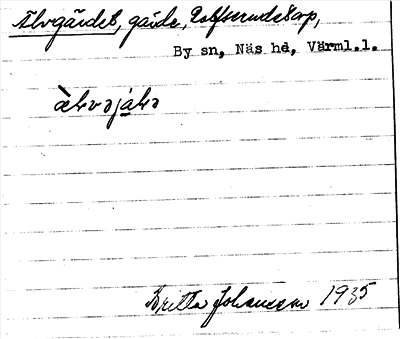 Älvgärdet, gärde, Rolfserudstorp,
By sn, Näs hd, Värml.l.
Britta Johansson 1935